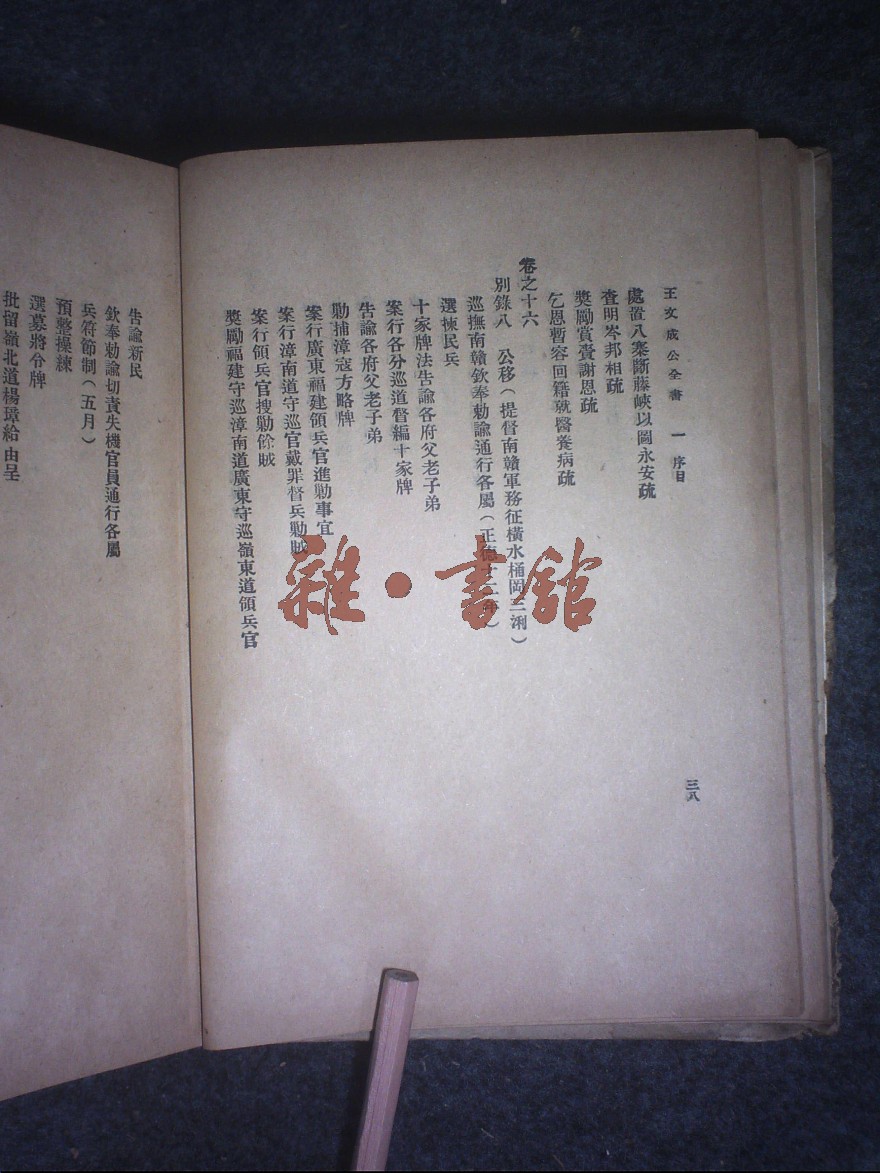 王文成公全書 一 序目
處置八寨斷藤峽以圖永安疏
查明岑邦相疏
獎勵賞賚謝恩疏
乞恩暫容回籍就醫養病疏
卷之十六
別錄八 公移（提督南贛軍務征橫水桶岡三浰）
巡撫南贛欽奉勅諭通行各屬（正德十二年）
選揀民兵
十家牌法告諭各府父老子弟
案行各分巡道督編十家牌
告諭各府父老子弟
勦捕漳寇方略牌
案行廣東福建領兵官進勦事宜
案行漳南道守巡官戴罪督兵勦賊
案行領兵官搜勦餘賊
獎勵福建守巡漳南道廣東守巡嶺東道領兵官
三八
告諭新民
欽奉勅諭切責失機官員通行各屬
兵符節制（五月）
預整操練
選募將令牌
批留嶺北道楊璋給由呈
雜·書館